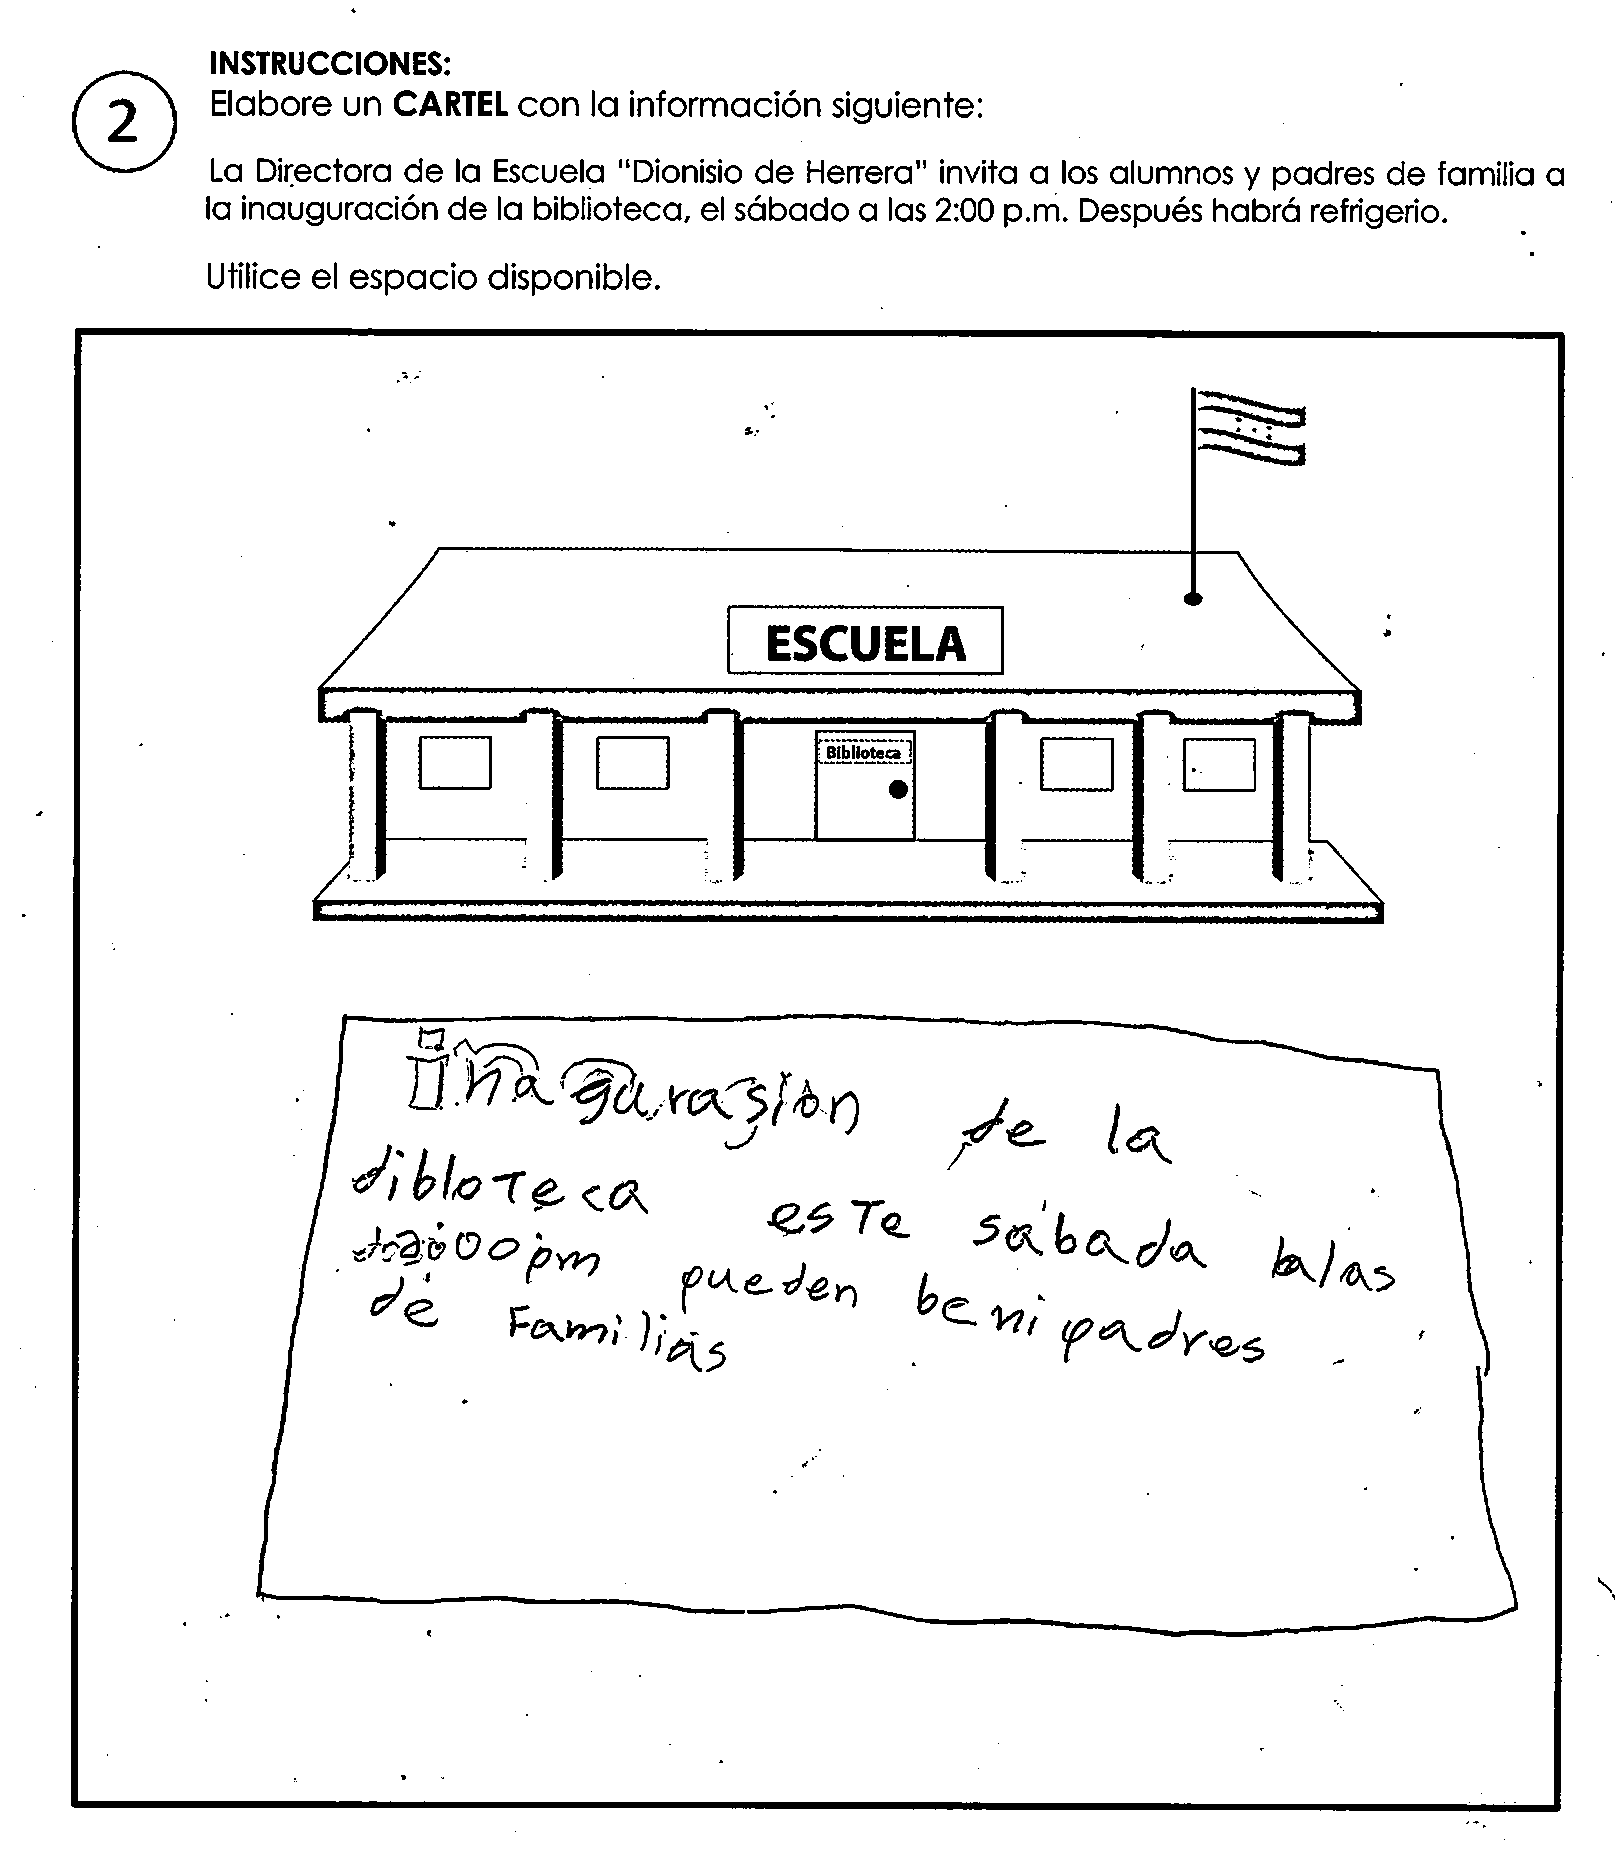 INSTRUCCIONES:
2
Elabore un CARTEL con la información siguiente:
La Directora de la Escuela "Dionisio de Herrera" invita a los alumnos y padres de familia a
la inauguración de la biblioteca, el sábado a las 2:00 p.m. Después habrá refrigerio.
Utilice el espacio disponible.
ESCUELA
Biblioteca
inagurasion de la
dibloteca este sábada
00pm pueden beni padres
de Familias